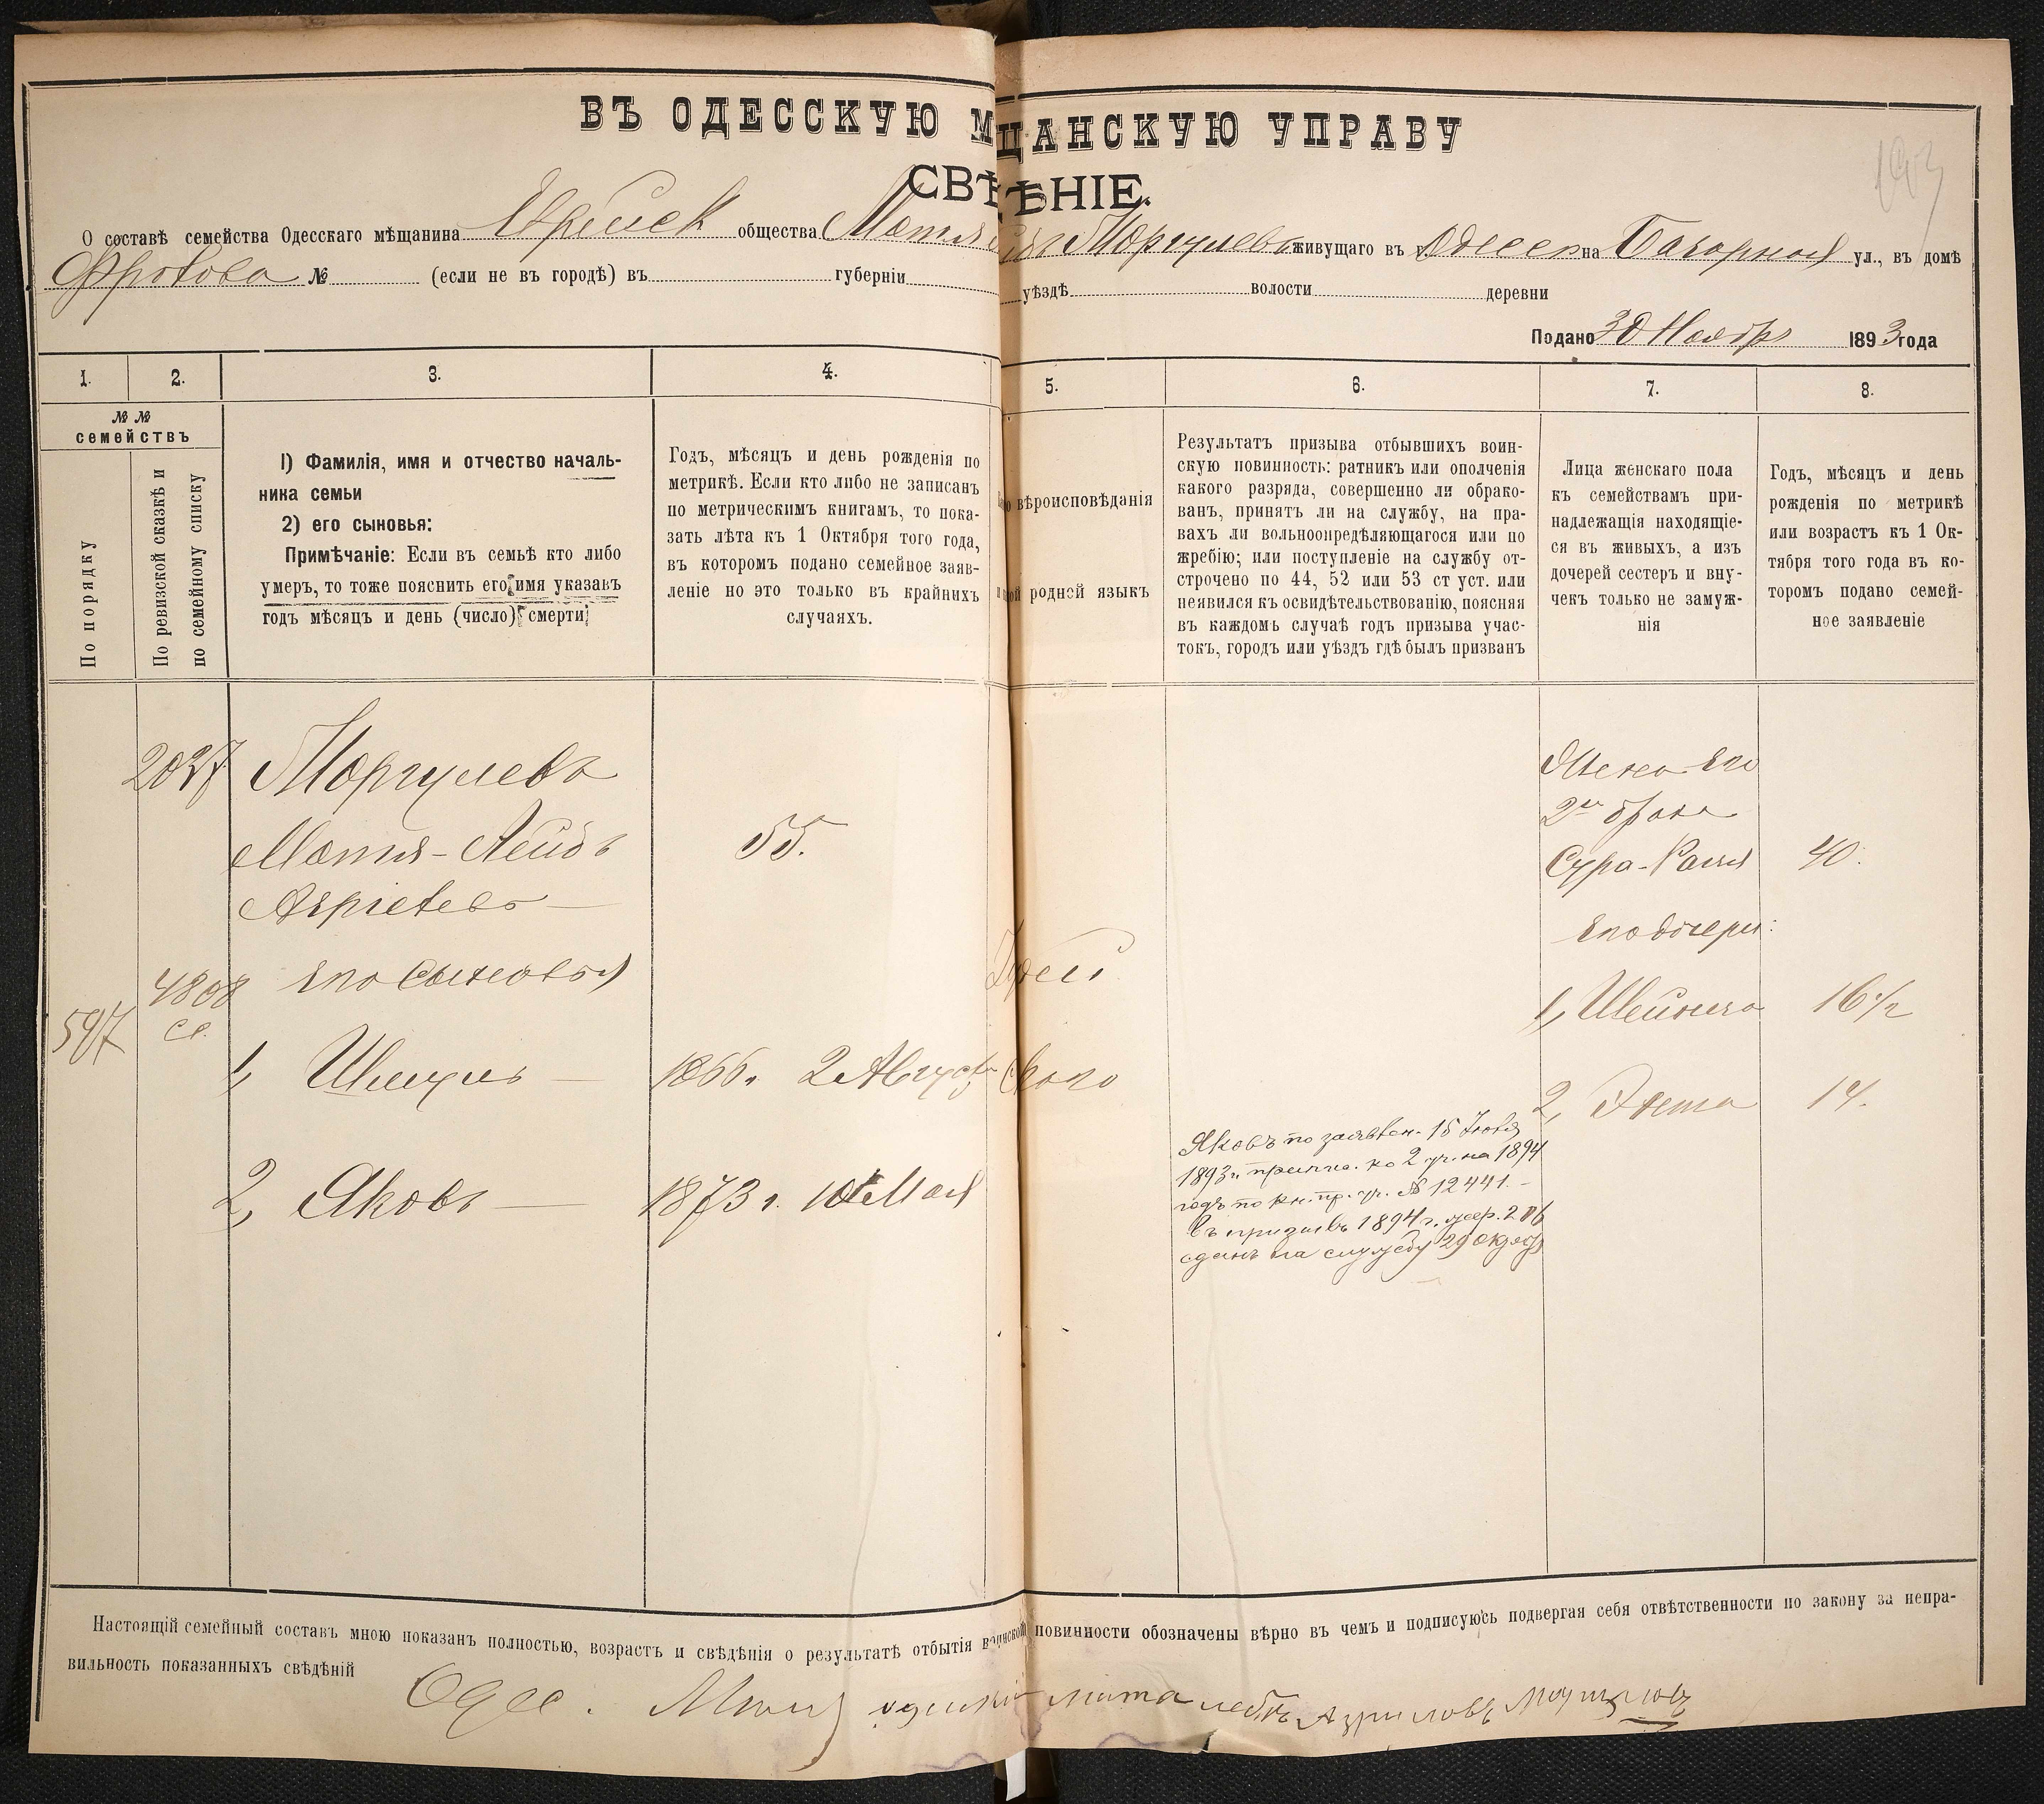 ВЪ ОДЕССКУЮ М ЩАНСКУЮ УПРАВУ
СВѢ ѢНІЕ.
О составѣ семейства Одесскаго мѣщанина Еврейск общества Матя Моргулевъ живущаго въ г Одессѣ на Базарной ул., въ домѣ
№ (если не въ городѣ) въ губерніи уѣздѣ волости деревни
Подано 30 Ноябр 1893 года
1. 2. 3. 4. 5. 6. 7. 8.
№ №
семействъ
По порядку
По ревизской сказкѣ и
по семейному списку
1) Фамилія, имя и отчество началь-
ника семьи
2) его сыновья:
Примѣчаніе: Если въ семьѣ кто либо
умеръ, то тоже пояснить его имя указавъ
годъ мѣсяцъ и день (число) смерти
Годъ, мѣсяцъ и день рожденія по
метрикѣ. Если кто либо не записанъ
по метрическимъ книгамъ, то пока-
зать лѣта къ 1 Октября того года,
въ которомъ подано семейное заяв-
леніе но это только въ крайнихъ
случаяхъ.
вѣроисповѣданія
родной языкъ
Результатъ призыва отбывшихъ воин-
скую повинность: ратникъ или ополченія
какого разряда, совершенно ли обрако-
ванъ, принятъ ли на службу, на пра-
вахъ ли вольноопредѣляющагося или по
жребію; или поступленіе на службу от-
строчено по 44, 52 или 53 ст уст. или
неявился къ освидѣтельствованію, поясняя
въ каждомъ случаѣ годъ призыва учас-
токъ, городъ или уѣздъ гдѣ былъ призванъ
Лица женскаго пола
къ семействамъ при-
надлежащія находящіе-
ся въ живыхъ, а изъ
дочерей сестеръ и вну-
чекъ только не замуж-
нія
Годъ, мѣсяцъ и день
рожденія по метрикѣ
или возрастъ къ 1 Ок-
тября того года въ ко-
торомъ подано семей-
ное заявленіе
2037 Моргулевъ
Матя-Лейбъ 55.
Жена его
2го брака
Сура-Рахля 40.
его дочери:
597 4808
сп.
его сыновья Іудей
1, Шейнза 16 1/2
1, Шмуль — 1866 г. 2 Август ского
2, Энта 14.
2, Яковъ — 1873 г. 10 Мая
Яковъ по заявлен. 15 Іюня
1893 г. припис. ко 2 уч. на 1894
годъ по кн. пр. уч. № 12441. —
Въ призывъ 1894 г. жер. 206
сданъ на службу 29 Октяб
Настоящій семейный составъ мною показанъ полностью, возрастъ и свѣдѣнія о результатѣ отбытія воинской повинности обозначены вѣрно въ чемъ и подписуюсь подвергая себя отвѣтственности по закону за непра-
вильность показанныхъ свѣдѣній
Одес. мата лебъ Азриловъ